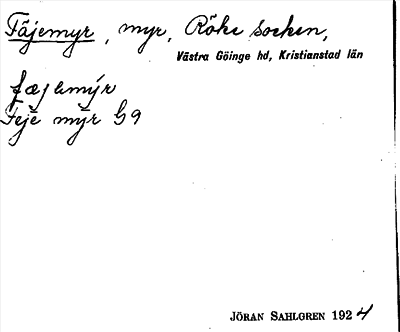 Fäjemyr, myr, Röke socken,
Västra Göinge hd, Kristianstad län
fæjemýr
Feje myr G9
JÖRAN SAHLGREN 1924